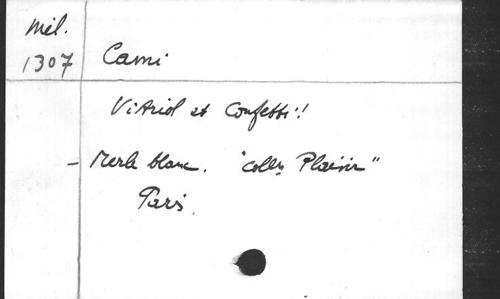 Mél.
1307 Cami
Vitriol et Confetti!
- Merle blanc. "Colln Plaisir"
Paris.